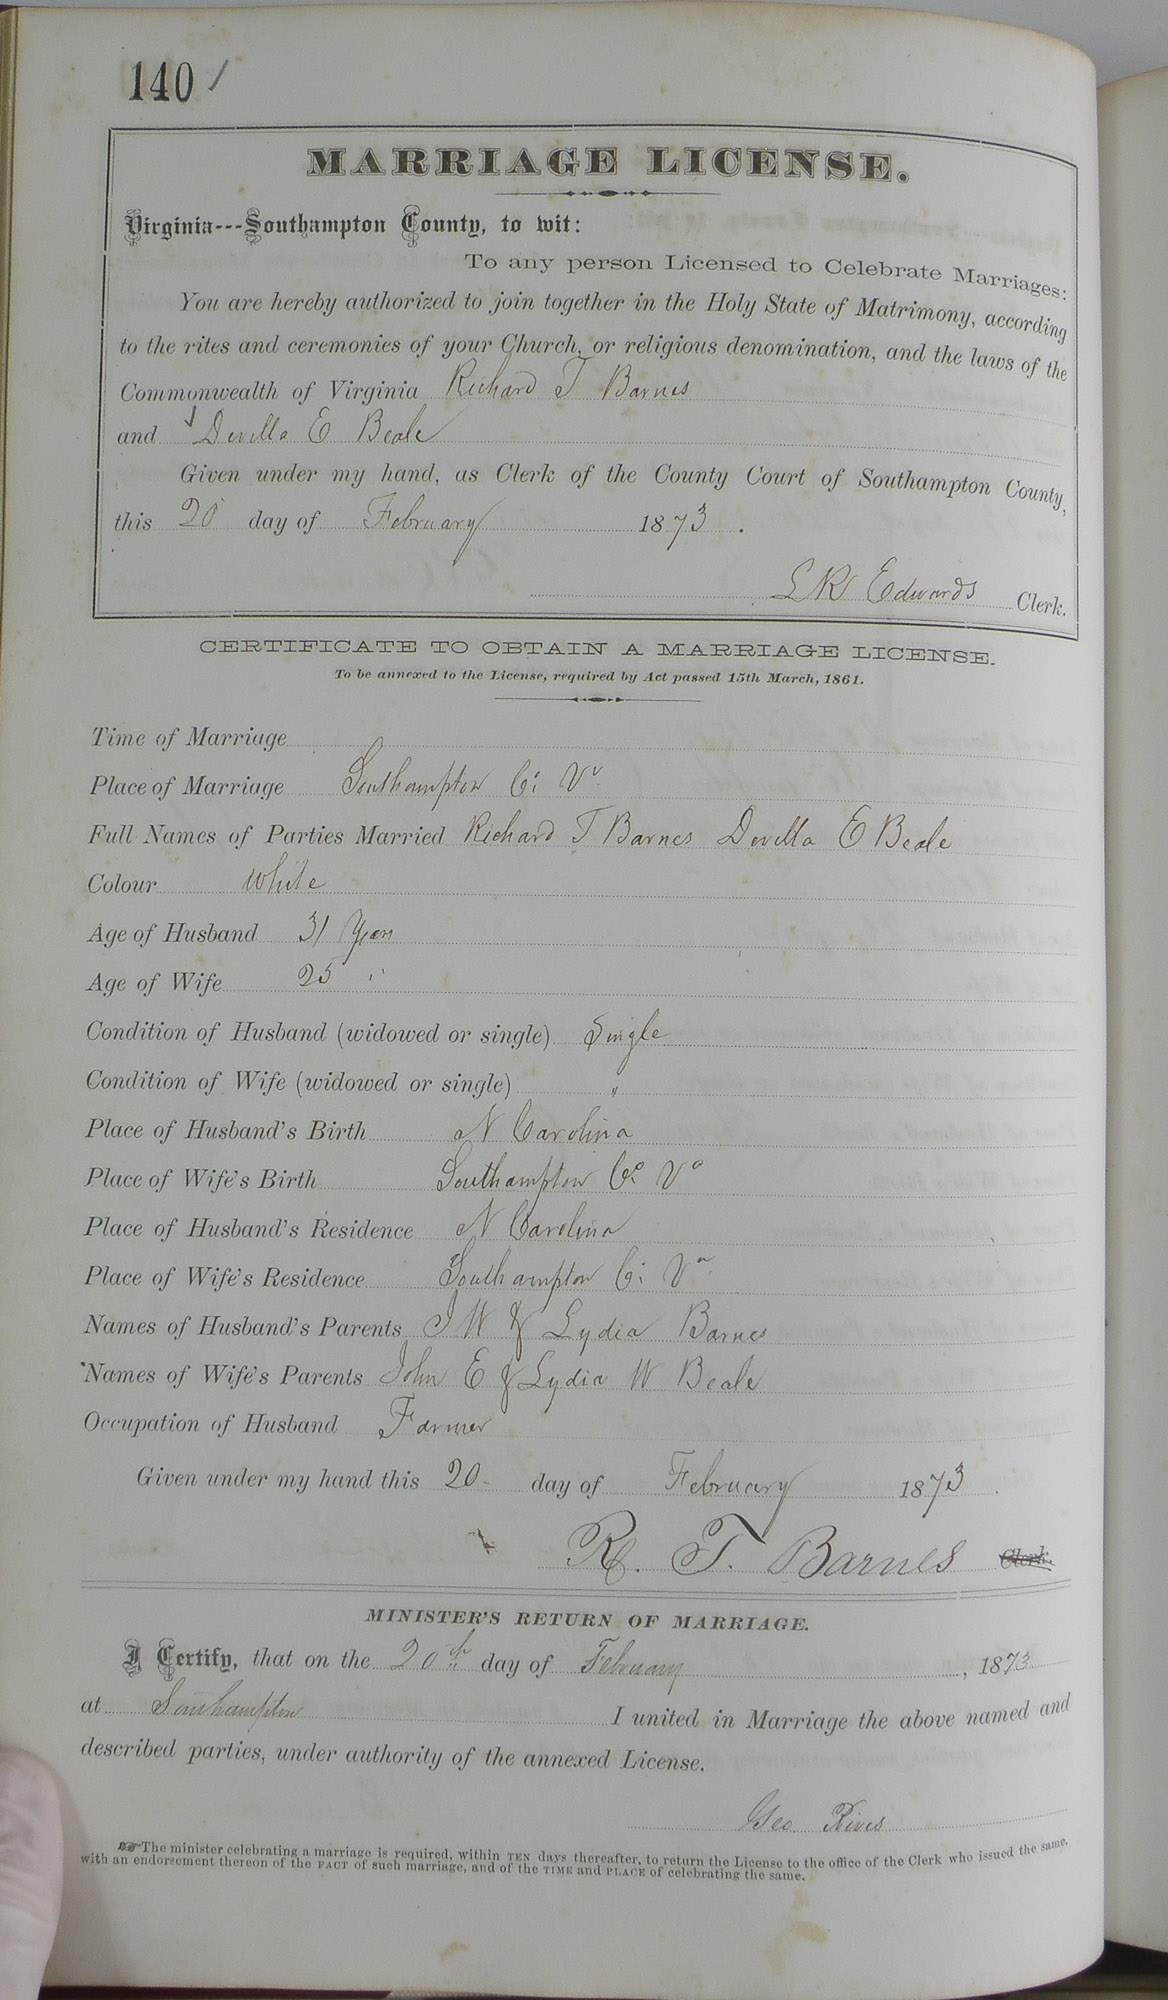 140
MARRIAGE LICENSE.
Virginia---Southampton County, to wit:
To any person Licensed to Celebrate Marriages:
You are hereby authorized to join together in the Holy State of Matrimony, according
to the rites and ceremonies of your Church, or religious denomination, and the laws of the
Commonwealth of Virginia Richard T Barnes
and Devilla E Beale
Given under my hand, as Clerk of the County Court of Southampton County,
this 20 day of February 1873.
L R Edwards Clerk.
CERTIFICATE TO OBTAIN A MARRIAGE LICENSE.
To be annexed to the License, required by Act passed 15th March, 1861.
Time of Marriage
Place of Marriage Southampton Co Va
Full Names of Parties Married Richard T Barnes Devilla E Beale
Colour White
Age of Husband 31 Years
Age of Wife 25 "
Condition of Husband (widowed or single) Single
Condition of Wife (widowed or single) "
Place of Husband's Birth N Carolina
Place of Wife's Birth Southampton Co Va
Place of Husband's Residence N Carolina
Place of Wife's Residence Southampton Co Va
Names of Husband's Parents J W & Lydia Barnes
Names of Wife's Parents John E & Lydia W Beale
Occupation of Husband Farmer
Given under my hand this 20 day of February 1873.
R. T. Barnes Clerk.
MINISTER'S RETURN OF MARRIAGE.
I Certify, that on the 20th day of February, 1873
at Southampton I united in Marriage the above named and
described parties, under authority of the annexed License.
Geo Rives
☞ The minister celebrating a marriage is required, within TEN days thereafter, to return the License to the office of the Clerk who issued the same,
with an endorsement thereon of the FACT of such marriage, and of the TIME and PLACE of celebrating the same.